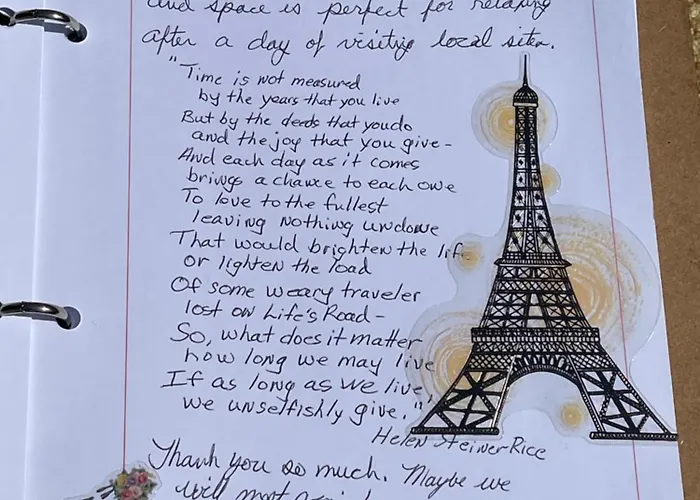 and space is perfect for relaxing
after a day of visiting local sites.
"Time is not measured
by the years that you live
But by the deeds that you do
and the joy that you give -
And each day as it comes
brings a chance to each one
To love to the fullest
leaving nothing undone
That would brighten the life
or lighten the load
Of some weary traveler
lost on Life's Road -
So, what does it matter
how long we may live
If as long as we live,
we unselfishly give."
Helen Steiner Rice
Thank you so much. Maybe we
will meet again